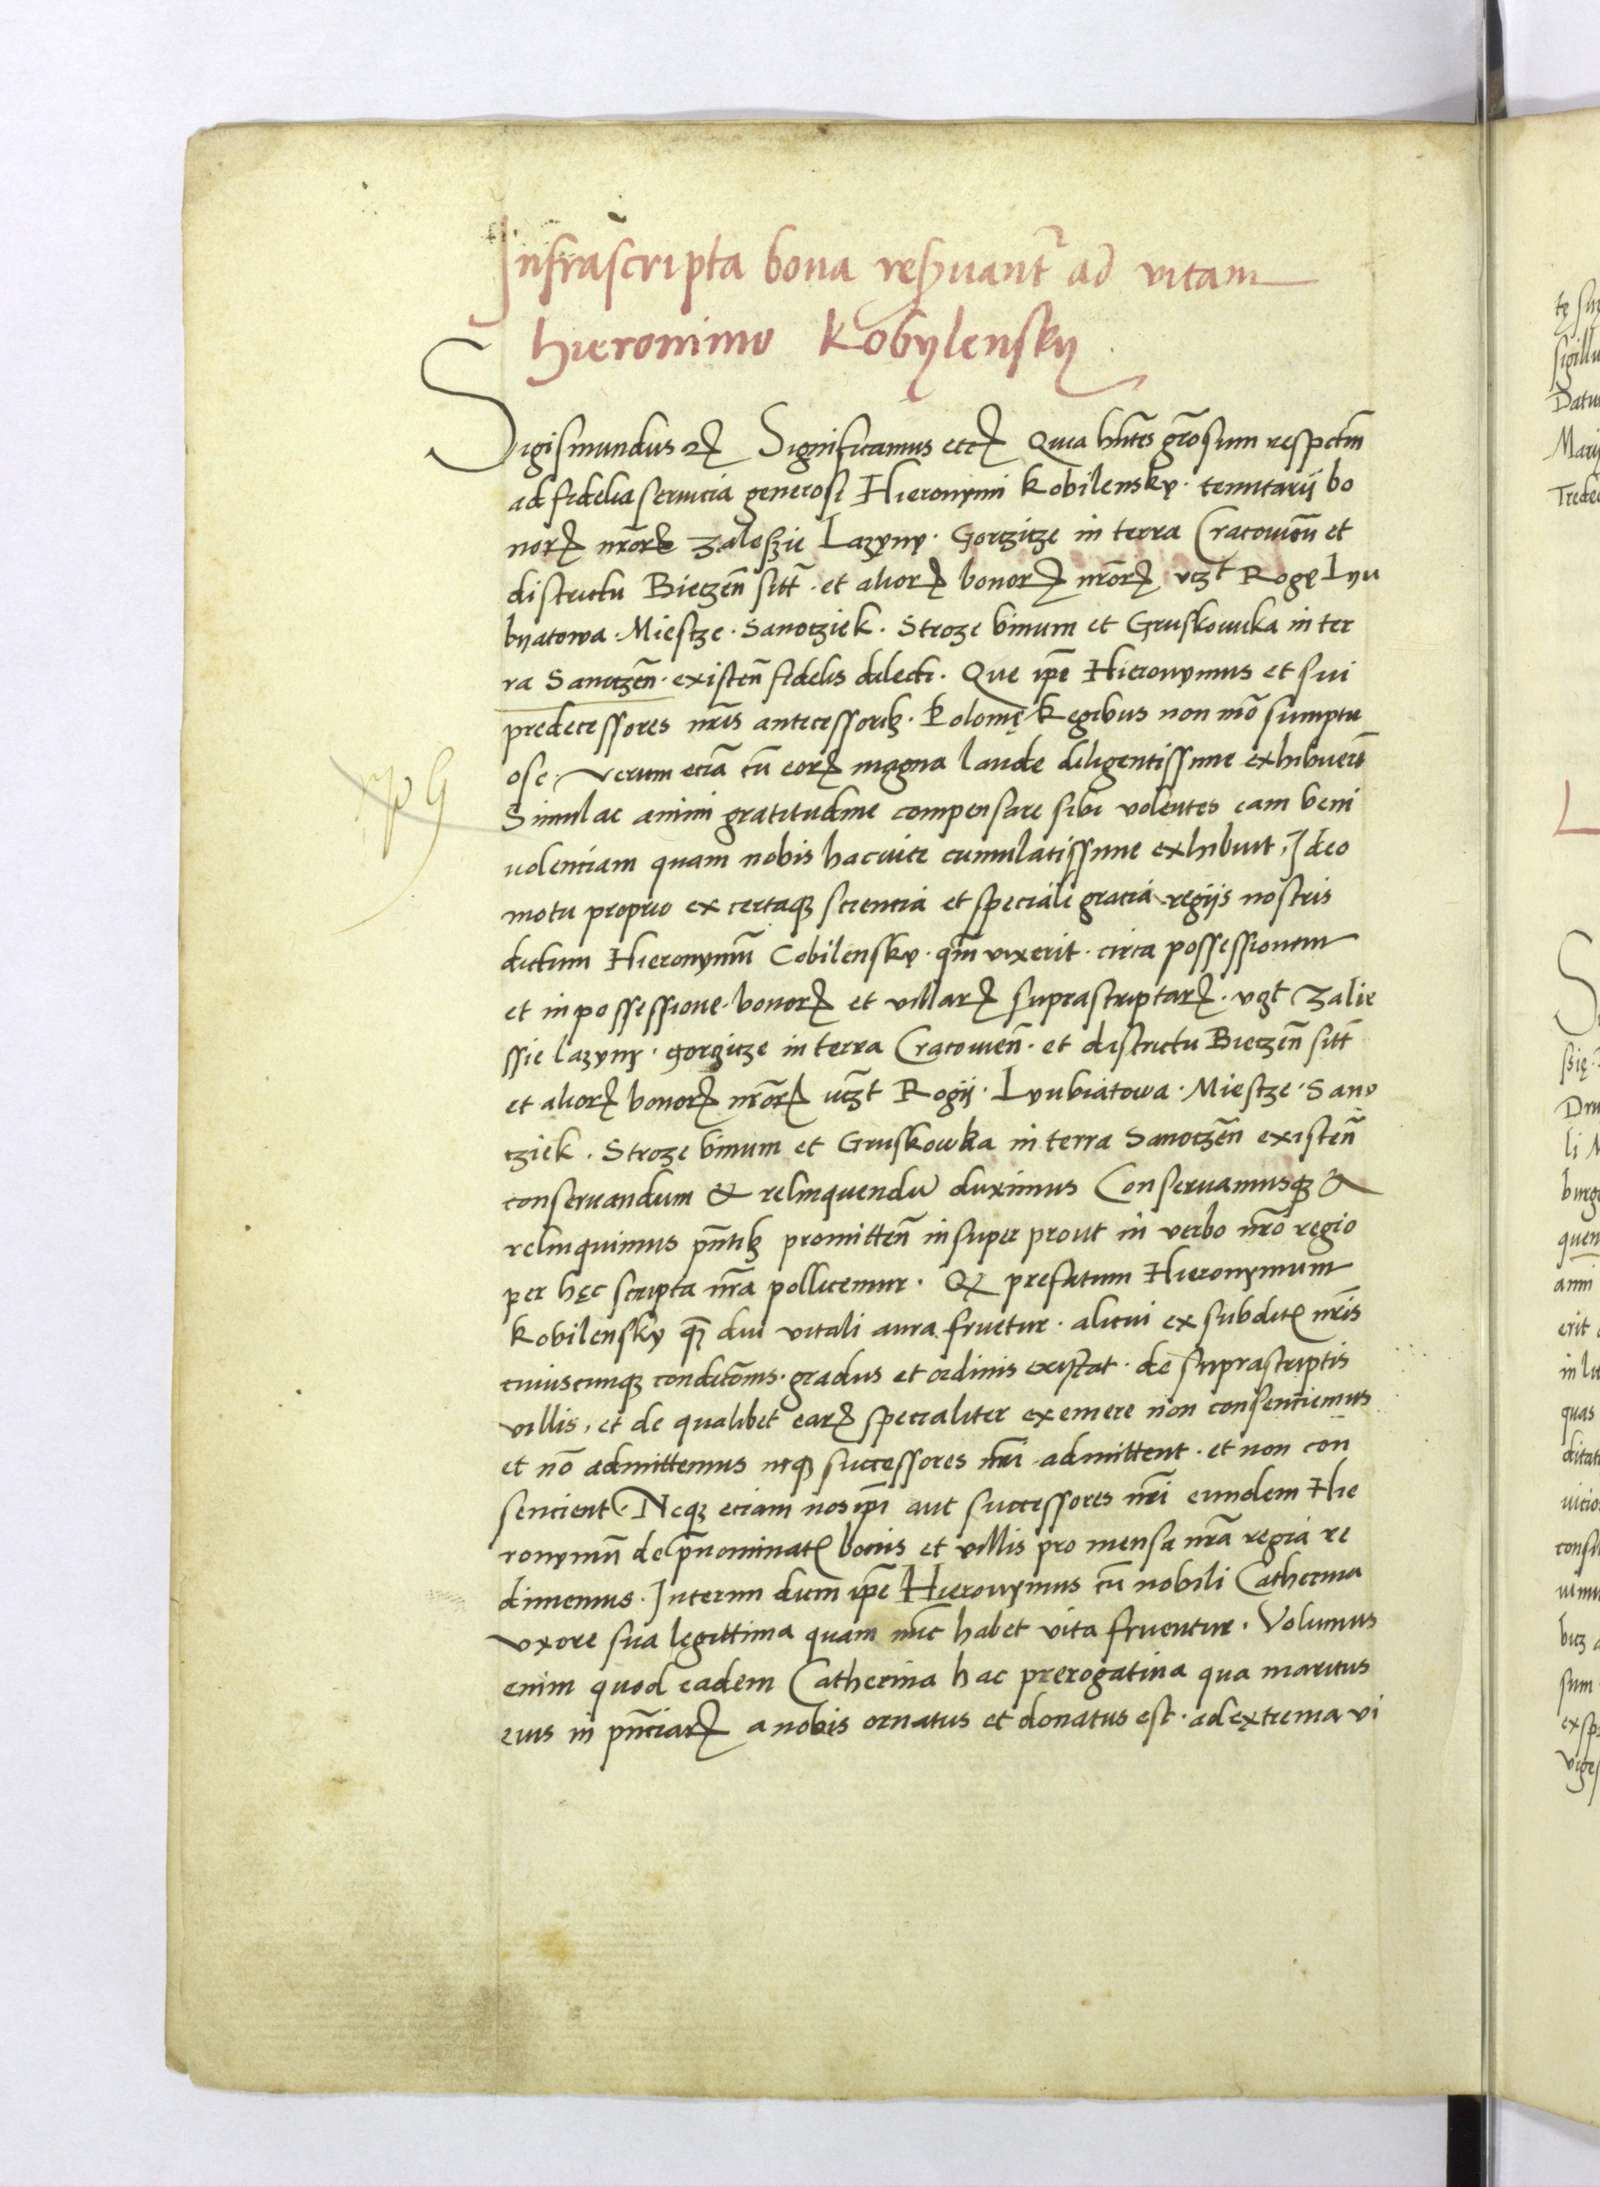 Infrascripta bona reſervant̃ ad vitam
Hieronimo Kobylensky
Sigismundus ꝛc̃ Significamus etcꝫ Quia hñtes gr̃osum respectũ
ad fidelia servicia generosi Hieronymi Kobilensky · tenutarij bo
norꝝ nr̃orꝝ Zaleszie Lazyny · Gorzicze in terra Cracovieñ et
districtu Bieczeñ sitt̃ · et aliorꝝ bonorꝝ nr̃orꝝ vcꝫt Rogy Lyu
byatowa · Miescze · Sanocziek · Stroze vimum et Gruskowka in ter
ra Sanoczeñ · existeñ fidelis dilecti · Que ip̃e Hieronymus et sui
predecessores nr̃is antecessoribꝫ · Polonię Regibus non mõ sumptu
ose · verum eciã cũ eorꝝ magna laude diligentissime exhibuerũt
Simul ac animi gratitudine compensare sibi volentes eam beni
volenciam quam nobis hac vice cumulatissime exhibuit, Ideo
motu proprio ex certaqꝫ sciencia et speciali gracia regijs nostris
dictum Hieronymũ Cobilensky · qm̃ vixerit · circa possessionem
et in possessione · bonorꝝ et villarꝝ suprascriptarꝝ · vcꝫt Zalie
ssie lazyny · gorzicze in terra Cracovieñ · et districtu Bieczeñ sitt̃
et aliorꝝ bonorꝝ nr̃orꝝ vcꝫt Rogij · Lyubiatowa · Miescze · Sano
cziek · Stroze vimum et Gruskowka in terra Sanoczeñ existeñ
conservandum & relinquendũ duximus Conservamusqꝫ &
relinquimus pñtibꝫ promitteñ insuper prout in verbo nr̃o regio
per hęc scripta nr̃a pollicemur · Qꝫ prefatum Hieronymum
Kobilensky qꝫ diu vitali aura fruetur · alicui ex subditꝭ nr̃is
cuiuscunqꝫ condicõnis · gradus et ordinis existat · de suprascriptis
villis, et de qualibet earꝝ specialiter exemere non consenciemus
et nõ admittemus neqꝫ successores nr̃i admittent · et non con
sencient · Neqꝫ eciam nos ip̃i aut successores nr̃i eundem Hie
ronymũ de p̃nominatꝭ bonis et villis pro mensa nr̃a regia re
dimemus · Interim dum ip̃e Hieronymus cũ nobili Catherina
vxore sua legittima quam nũc habet vita fruentur · Volumus
enim quod eadem Catherina hac prerogatiua qua maritus
eius in pñciarꝝ a nobis ornatus et donatus est · ad extrema vi